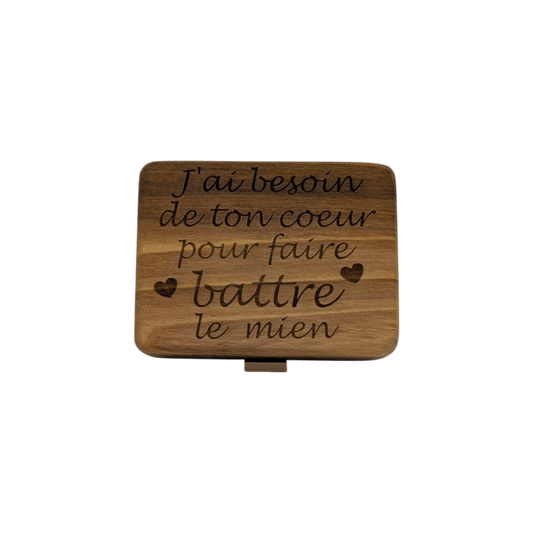 J'ai besoin
de ton coeur
pour faire
battre
le mien